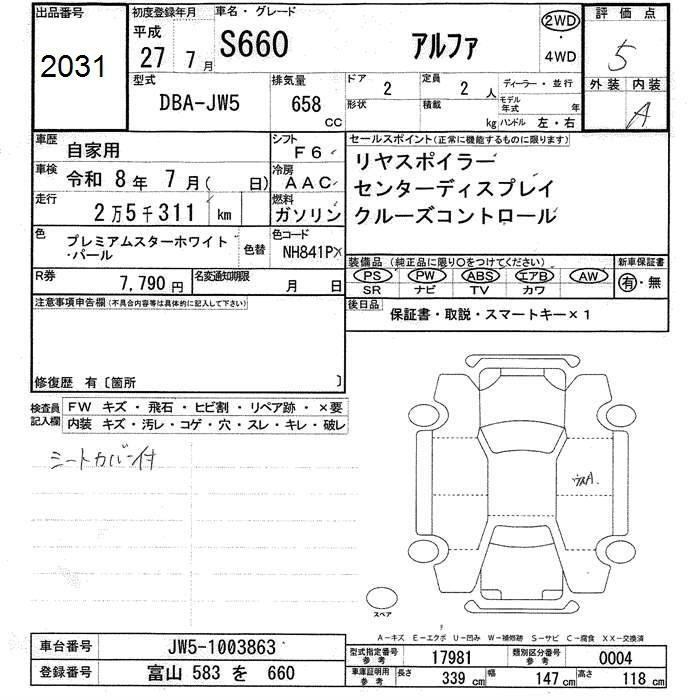 出品番号
2031
初度登録年月
平成
27 7月
車名・グレード
S660 アルファ
2WD
・
4WD
評価点
5
外装 内装
A
型式
DBA-JW5
排気量
658
CC
ドア 2
形状
定員 2 人
積載 kg
ディーラー・並行
モデル年式 年
ハンドル 左・右
車歴 自家用
シフト F6
車検 令和 8年 7月( 日)
冷房 AAC
走行 2万5千311 km
燃料 ガソリン
色 プレミアムスターホワイト・パール
色替
色コード NH841P
R券 7,790円
名変通知期限 月 日
セールスポイント(正常に機能するものに限ります)
リヤスポイラー
センターディスプレイ
クルーズコントロール
装備品 (純正品に限り○をつけてください)
PS PW ABS エアB AW
SR ナビ TV カワ
新車保証書
有・無
後日品 保証書・取説・スマートキー×1
注意事項申告欄(不具合内容等は具体的に記入して下さい)
修復歴 有〔箇所 〕
検査員記入欄
FW キズ・飛石・ヒビ割・リペア跡・×要
内装 キズ・汚レ・コゲ・穴・スレ・キレ・破レ
シートカバー付
スペア
A-キズ E-エクボ U-凹み W-補修跡 S-サビ C-腐食 XX-交換済
車台番号 JW5-1003863
登録番号 富山 583 を 660
型式指定番号 参考 17981
類別区分番号 参考 0004
車庫証明用 参考 長さ 339 cm 幅 147 cm 高さ 118 cm